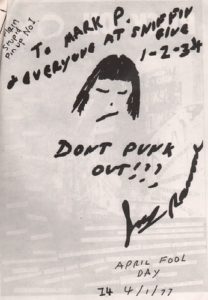 Plain
Stupid
Pin up No.1
To MARK P.
& EVERYONE AT SNIFFIN
GLUE
1-2-3-4
DONT PUNK
OUT!!!
APRIL FOOL
DAY
4/1/77